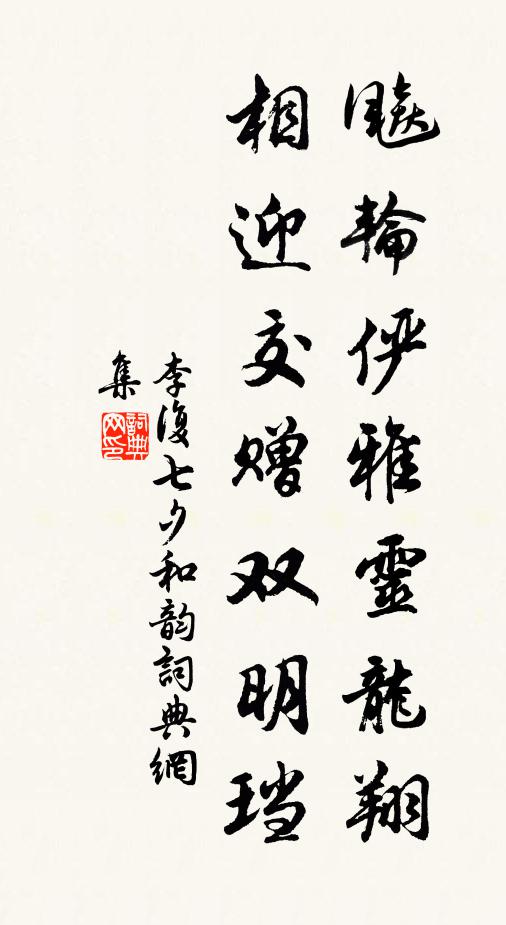 飈輪俨雅靈龍翔
相迎交赠双明珰
李復七夕和韵詞典網
集
詞典网印